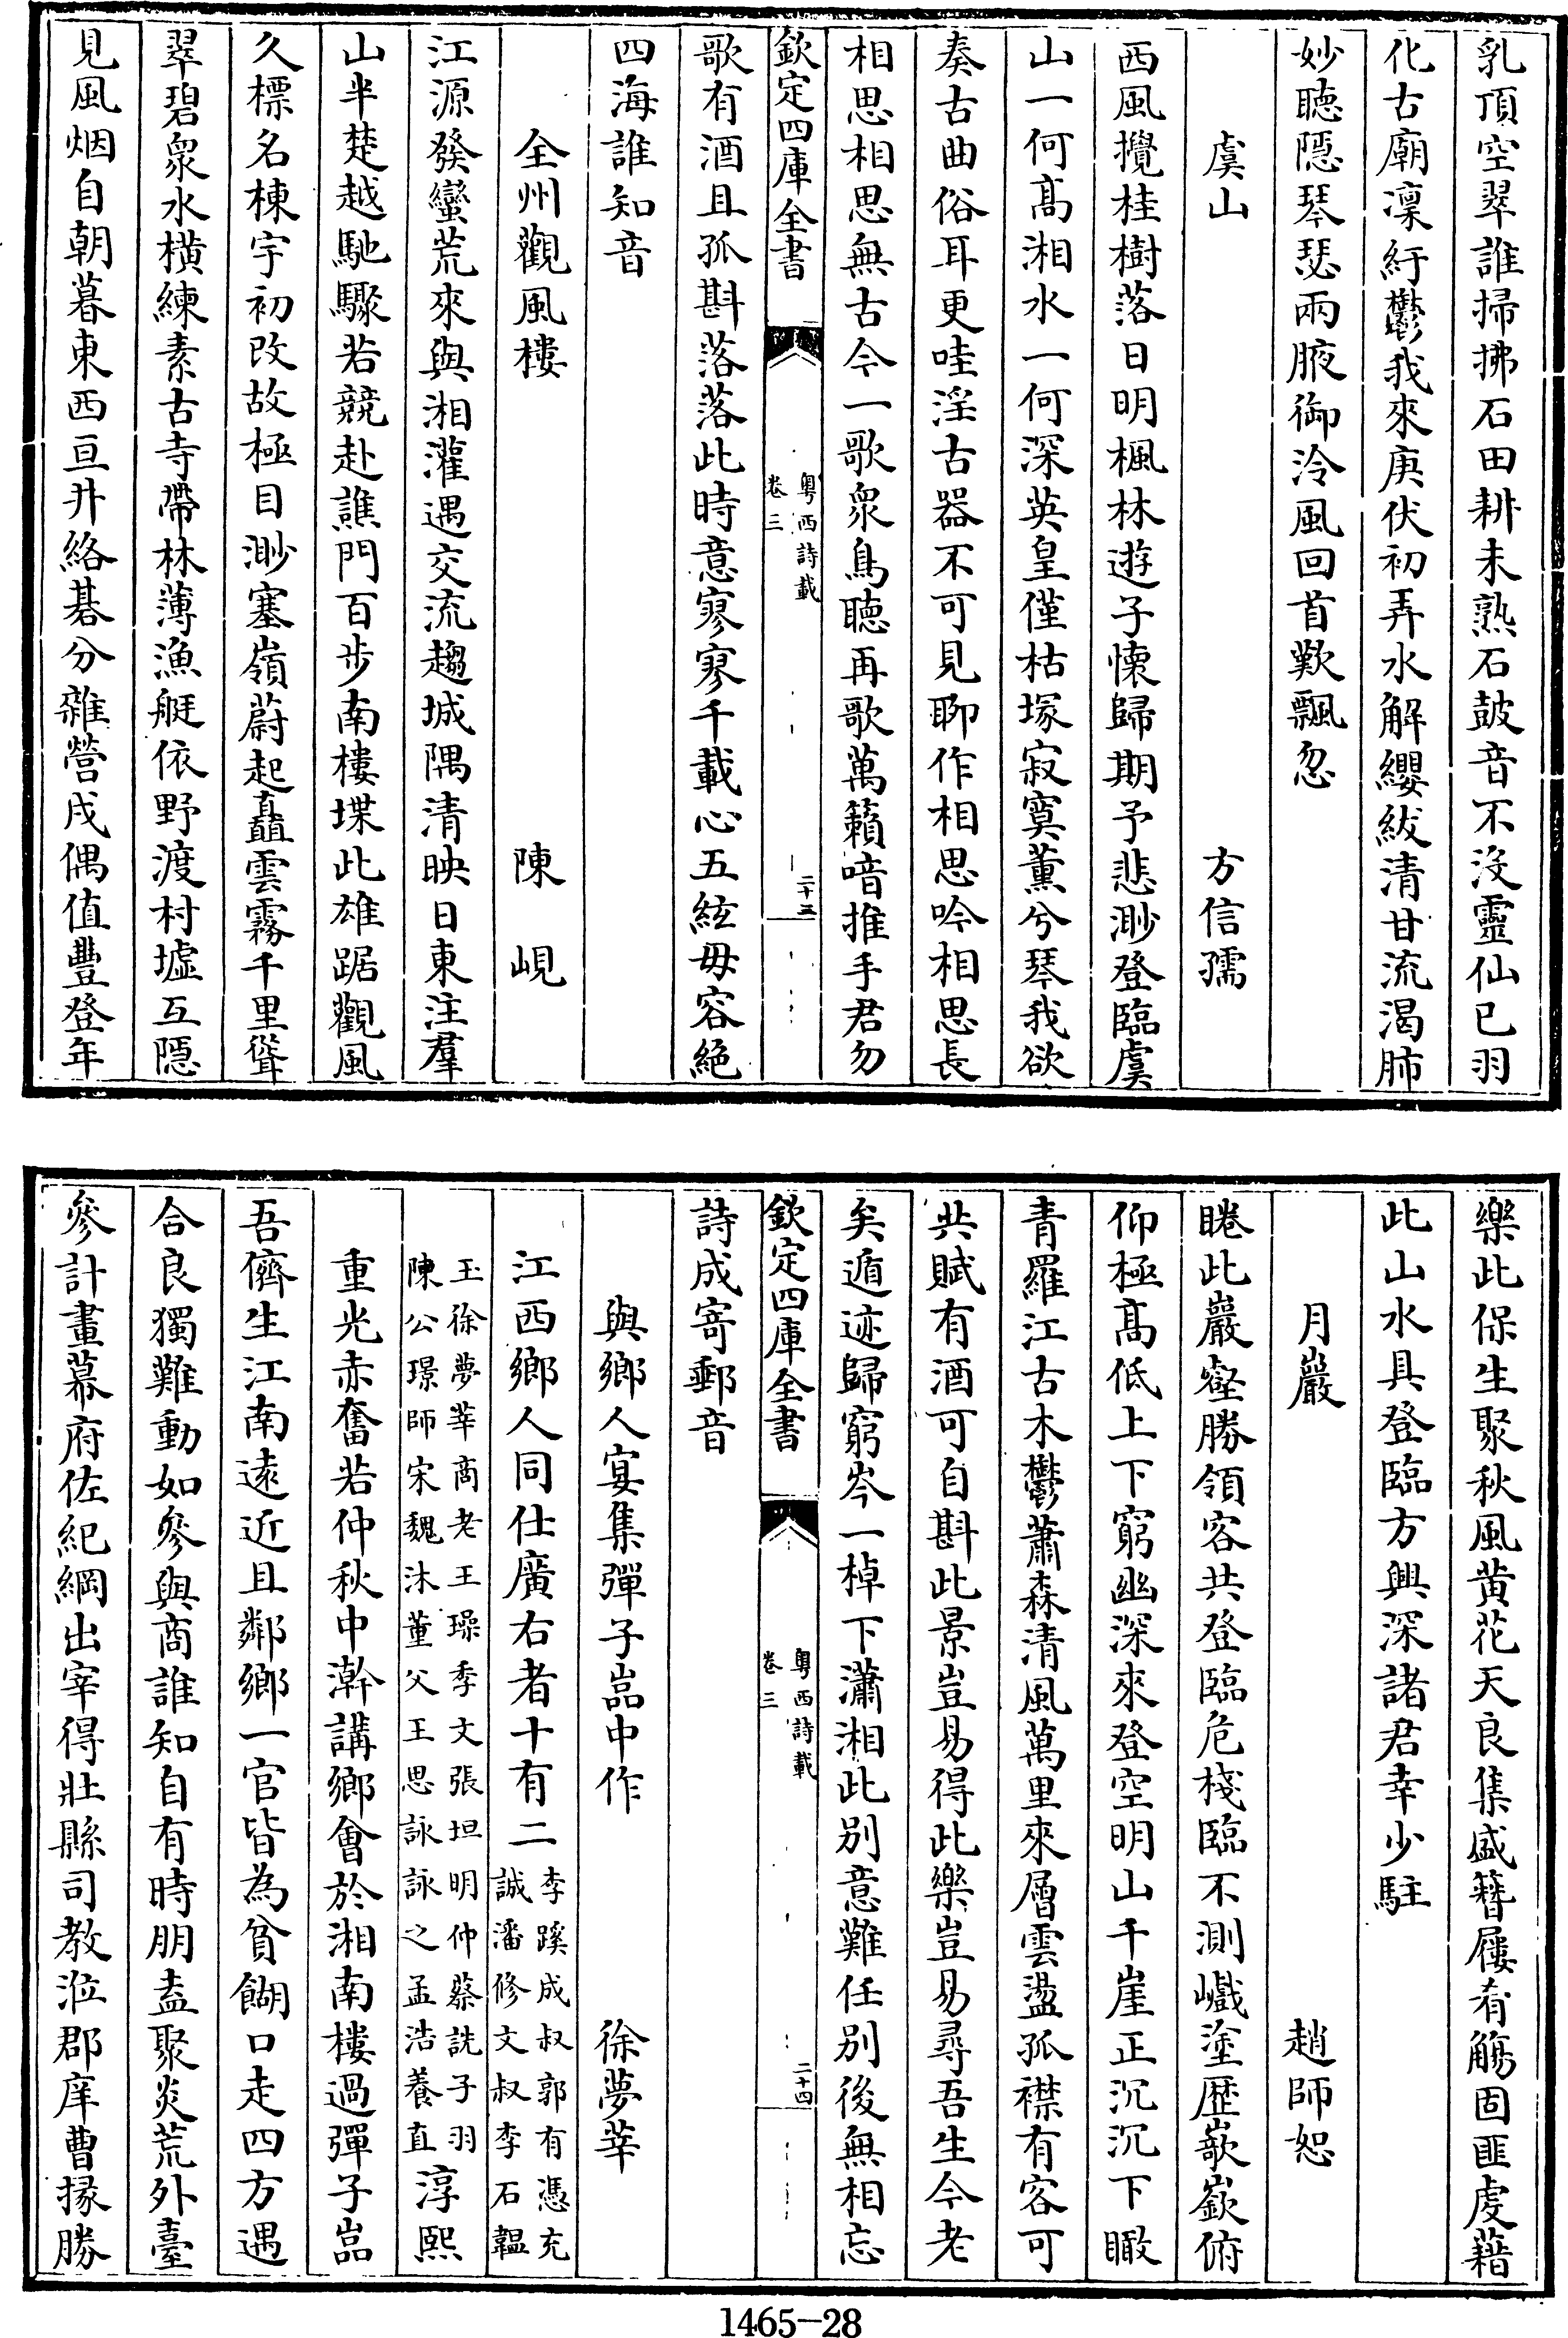 乳頂空翠誰掃拂石田耕未熟石鼓音不沒靈仙已羽
化古廟凜紆鬱我來庚伏初弄水解纓紱清甘流渴肺
妙聴隠琴瑟兩腋御泠風回首歎飄忽
虞山 方信孺
西風攪桂樹落日明楓林遊子懐歸期予悲渺登臨虞
山一何髙湘水一何深英皇僅枯塚寂寞薫兮琴我欲
奏古曲俗耳更哇淫古器不可見聊作相思吟相思長
相思相思無古今一歌衆鳥聴再歌萬籟喑推手君勿
欽定四庫全書 粤西詩載 卷三 二十三
歌有酒且孤斟落落此時意寥寥千載心五絃毋容絶
四海誰知音
全州觀風樓 陳峴
江源發蠻荒來與湘灌遇交流趨城隅清映日東注羣
山半楚越馳驟若競赴譙門百步南樓堞此雄踞觀風
久標名棟宇初改故極目渺塞嶺蔚起矗雲霧千里聳
翠碧衆水横練素古寺帶林薄漁艇依野渡村墟互隠
見風烟自朝暮東西亘井絡碁分雜營戍偶值豐登年
樂此保生聚秋風黄花天良集盛簪屨肴觴固匪䖍藉
此山水具登臨方興深諸君幸少駐
月巖 趙師恕
睠此巖壑勝領客共登臨危棧臨不測巇塗歴嶔嶽俯
仰極髙低上下窮幽深來登空明山千崖正沉沉下瞰
青羅江古木鬱蕭森清風萬里來層雲盪孤襟有客可
共賦有酒可自斟此景豈易得此樂豈易尋吾生今老
矣遁迹歸窮岑一棹下瀟湘此别意難任别後無相忘
欽定四庫全書 粤西詩載 卷三 二十四
詩成寄郵音
與鄉人宴集彈子嵓中作 徐夢莘
江西鄉人同仕廣右者十有二李蹊成叔郭有憑充誠潘修文叔李石韞
玉徐夢莘商老王璪季文張坦明仲蔡詵子羽陳公璟師宋魏沐董父王思詠詠之孟浩養直淳熙
重光赤奮若仲秋中澣講鄉會於湘南樓過彈子嵓
吾儕生江南逺近且鄰鄉一官皆為貧餬口走四方遇
合良獨難動如參與商誰知自有時朋盍聚炎荒外臺
參計畫幕府佐紀綱出宰得壯縣司教涖郡庠曹掾勝
1465-28